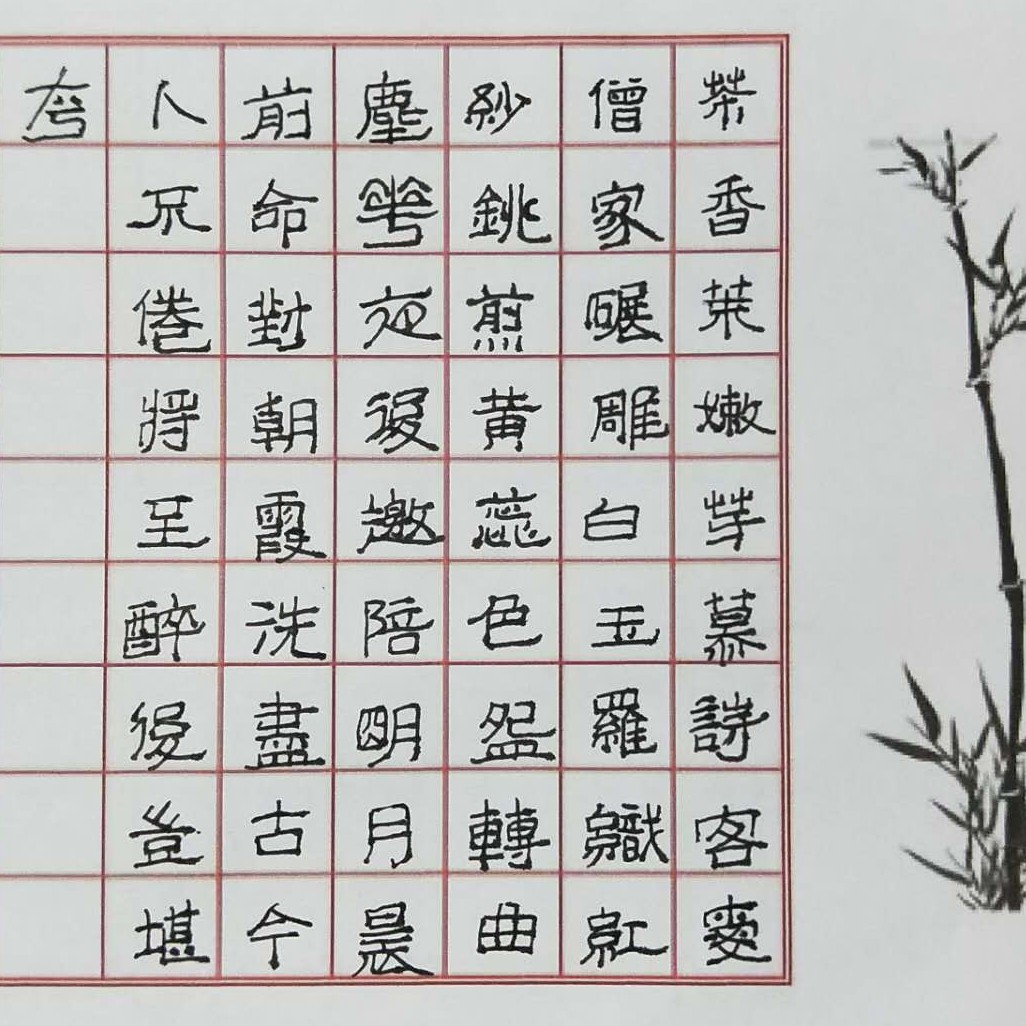 茶香葉嫩芽慕詩客愛
僧家碾雕白玉羅織紅
紗銚煎黃蕊色盌轉曲
塵華夜後邀陪明月晨
前命對朝霞洗盡古今
人不倦將至醉後豈堪
夸